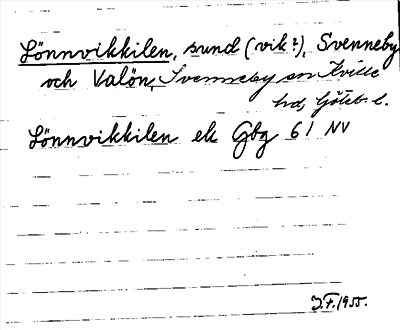 Lönnvikkilen, sund (vik?), Svenneby
och Valön, Svenneby sn Kville
hd, Göteb. l.
Lönnvikkilen ek Gbg 61 NV
J.F. 1955.